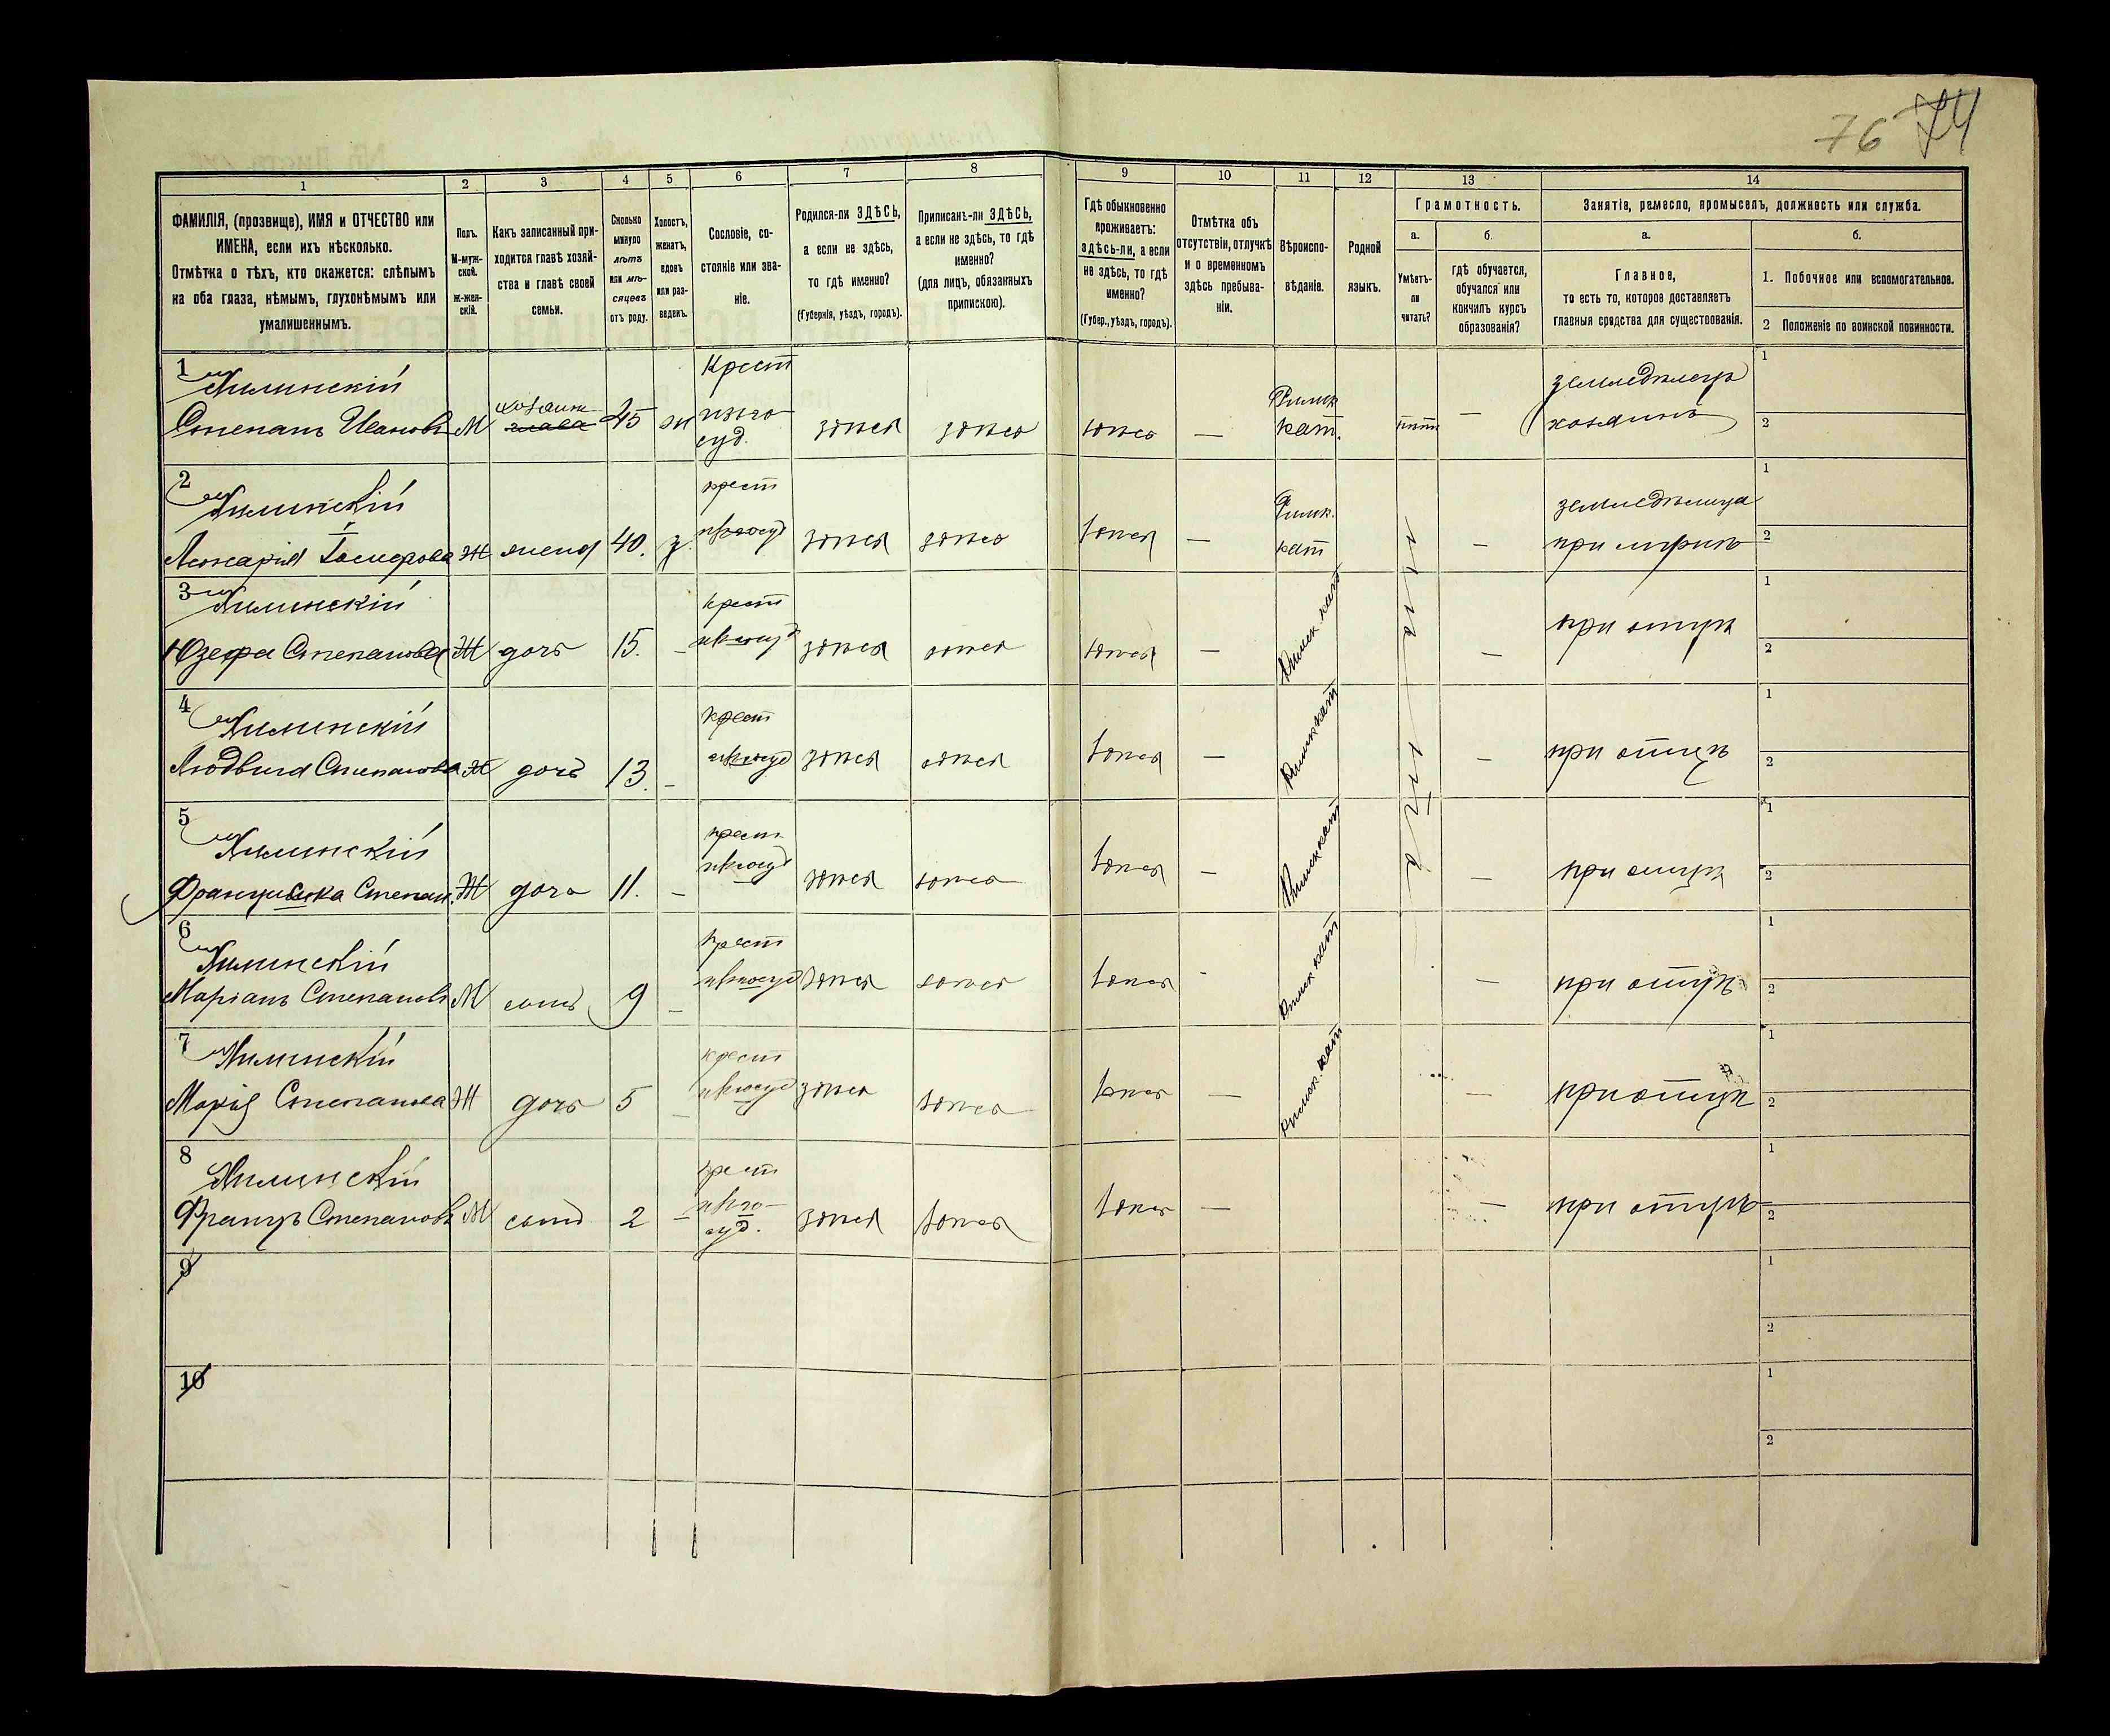 76 74
1
2
3
4
5
6
7
8
9
10
11
12
13
14
ФАМИЛІЯ, (прозвище), ИМЯ и ОТЧЕСТВО или
ИМЕНА, если ихъ нѣсколько.
Отмѣтка о тѣхъ, кто окажется: слѣпымъ
на оба глаза, нѣмымъ, глухонѣмымъ или
умалишеннымъ.
Полъ.
М-муж-
ской.
Ж-жен-
скій.
Какъ записанный при-
ходится главѣ хозяй-
ства и главѣ своей
семьи.
Сколько
минуло
лѣтъ
или мѣ-
сяцевъ
отъ роду.
Холостъ,
женатъ,
вдовъ
или раз-
веденъ.
Сословіе, со-
стояніе или зва-
ніе.
Родился-ли ЗДѢСЬ,
а если не здѣсь,
то гдѣ именно?
(Губернія, уѣздъ, городъ).
Приписанъ-ли ЗДѢСЬ,
а если не здѣсь, то гдѣ
именно?
(для лицъ, обязанныхъ
припискою).
Гдѣ обыкновенно
проживаетъ:
здѣсь-ли, а если
не здѣсь, то гдѣ
именно?
(Губер., уѣздъ, городъ).
Отмѣтка объ
отсутствіи, отлучкѣ
и о временномъ
здѣсь пребыва-
ніи.
Вѣроиспо-
вѣданіе.
Родной
языкъ.
Грамотность.
а.
Умѣетъ-
ли
читать?
б.
гдѣ обучается,
обучался или
кончилъ курсъ
образованія?
Занятіе, ремесло, промыселъ, должность или служба.
а.
Главное,
то есть то, которое доставляетъ
главныя средства для существованія.
б.
1. Побочное или вспомогательное.
2 Положеніе по воинской повинности.
1
Степанъ Ивановъ М хозяин глава 45 жн Крест
суд. здѣся здѣсь здѣсь — Римк кат. —
земледѣлецъ
хозяинъ
1
2
2
Ж жена 40. з. крест
здѣся здѣсь здѣся — Римк.
кат —
земледѣлица
при мужѣ
1
2
3
Юзефа Степанова Ж дочь 15. — крест
здѣся здѣся здѣся — Римск. кат —
при отцѣ
1
2
4
Людвига Степанова Ж дочь 13. — крест
здѣся здѣся здѣся — Римк кат —
при отцѣ
1
2
5
Францишка Степан. Ж дочь 11. — крест
здѣся здѣся здѣся — Римск кат —
при отцѣ
1
2
6
Маріанъ Степановъ М сынъ 9 — крест
здѣся здѣся здѣся Римск кат —
при отцѣ
1
2
7
Марія Степанова Ж дочь 5 — крест
здѣся здѣся здѣся — Римск. кат —
при отцѣ
1
2
8
Францъ Степановъ М сынъ 2 — крест
суд. здѣся здѣся здѣся — —
при отцѣ
1
2
9
1
2
10
1
2